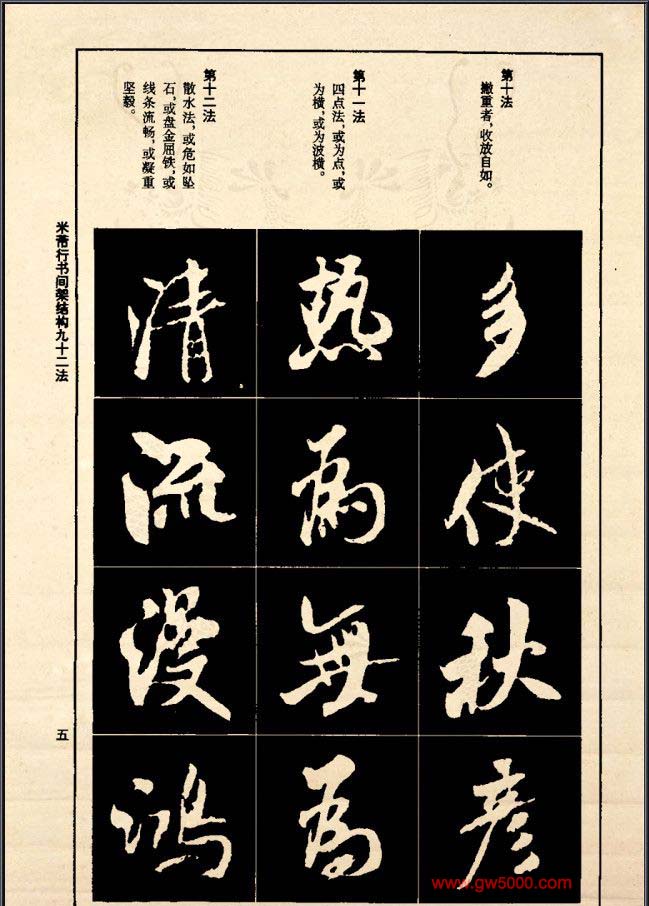 第十法
撇重者，收放自如。
多
使
秋
彦
第十一法
四点法，或为点，或
为横，或为波横。
热
为
无
为
第十二法
散水法，或危如坠
石，或盘金屈铁，或
线条流畅，或凝重
坚毅。
清
流
漫
鸿
米芾行书间架结构九十二法
五
www.gw5000.com